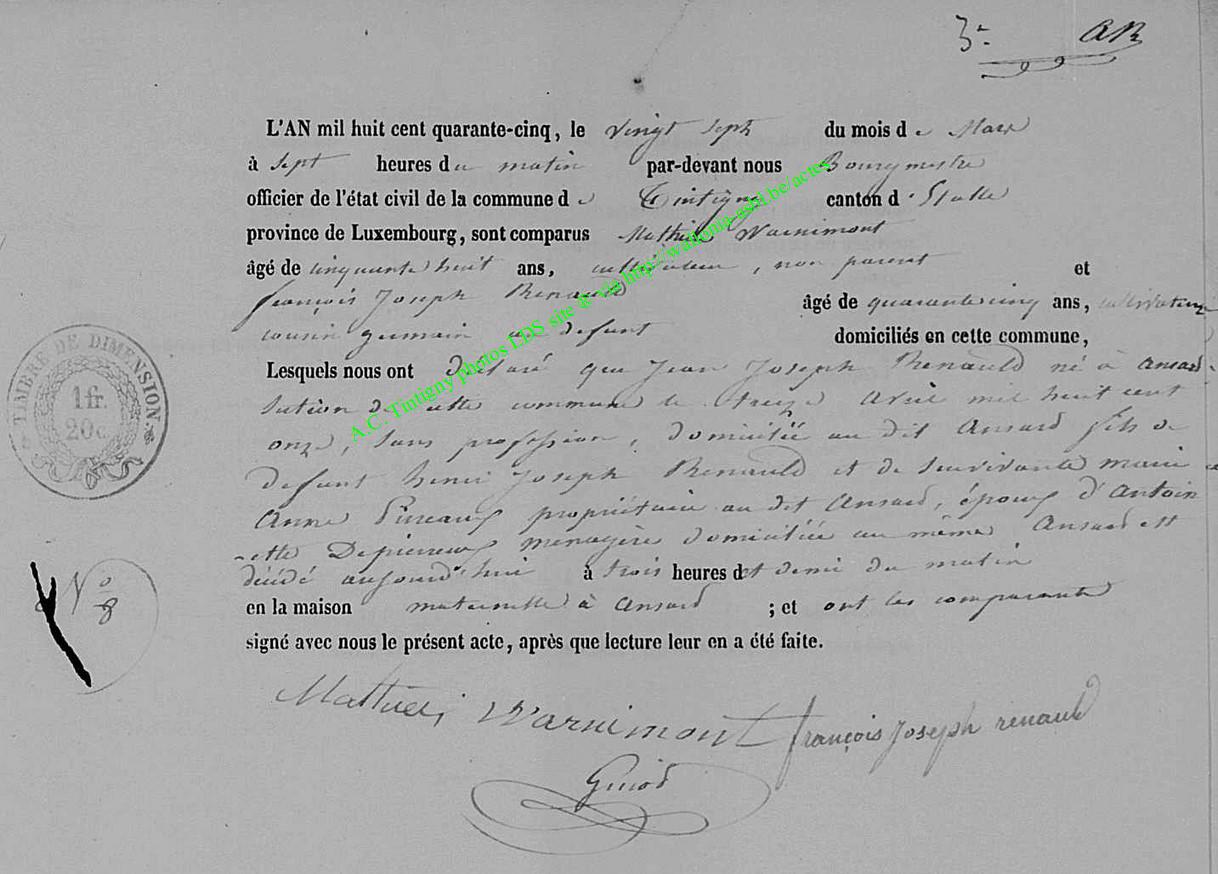 3e AR
L'AN mil huit cent quarante-cinq, le vingt sept du mois de Mars
à sept heures du matin par-devant nous Bourgmestre
officier de l'état civil de la commune de Tintigny canton d'Etalle
province de Luxembourg, sont comparus Mathieu Warnimont
âgé de cinquante huit ans, cultivateur, non parent et
françois Joseph Renauld âgé de quarante cinq ans, cultivateur
cousin germain au defunt domiciliés en cette commune,
Lesquels nous ont déclaré que Jean Joseph Renauld né à ansard
Section de cette commune le treize Avril mil huit cent
onze, sans profession, domicilié au dit Ansard fils de
defunt henri Joseph Renauld et de Survivante marie
Anne propriétaire au dit Ansard, époux d'Antoin
-ette Depierreux menagère domiciliée au même Ansard est
décédé aujourd'hui à trois heures et demi du matin
en la maison maternelle à Ansard ; et ont les comparants
signé avec nous le présent acte, après que lecture leur en a été faite.
Mathieu Warnimont françois Joseph renauld
TIMBRE DE DIMENSION.
1fr.
20c
No
8
A.C. Tintigny photos LDS site & via http://wallonia-asbl.be/actes